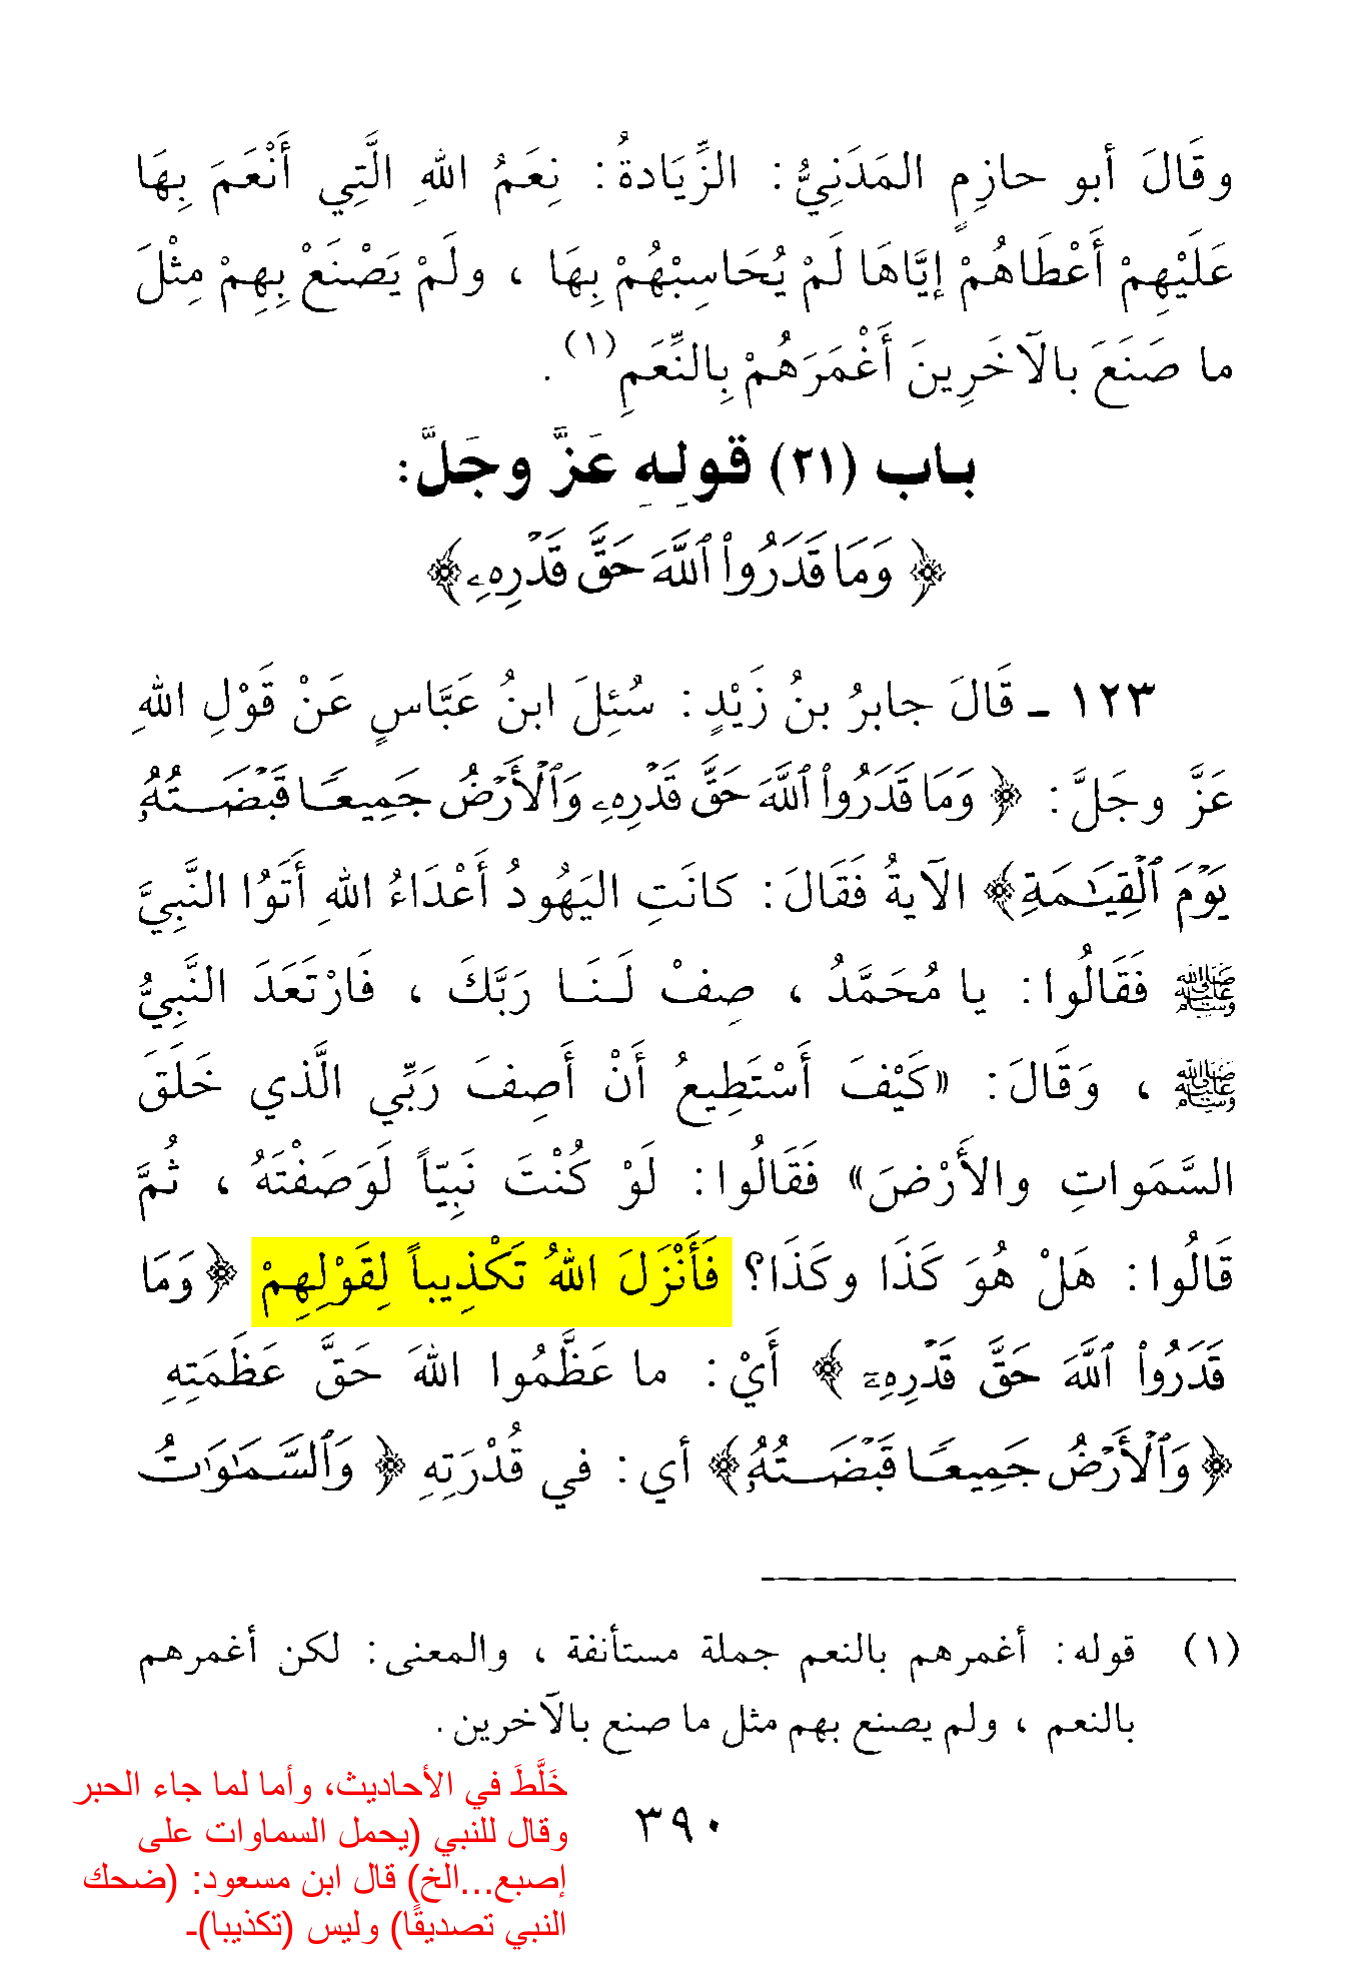 وقَالَ أبو حازِمٍ المَدَنِيُّ: الزِّيَادةُ: نِعَمُ اللهِ الَّتِي أَنْعَمَ بِهَا
عَلَيْهِمْ أَعْطَاهُمْ إيَّاهَا لَمْ يُحَاسِبْهُمْ بِهَا ، ولَمْ يَصْنَعْ بِهِمْ مِثْلَ
ما صَنَعَ بالآخَرِينَ أَغْمَرَهُمْ بِالنِّعَمِ(١).
باب (٢١) قولِهِ عَزَّ وجَلَّ:
﴿وَمَا قَدَرُواْ ٱللَّهَ حَقَّ قَدۡرِهِۦ﴾
١٢٣ ـ قَالَ جابرُ بنُ زَيْدٍ: سُئِلَ ابنُ عَبَّاسٍ عَنْ قَوْلِ اللهِ
عَزَّ وجَلَّ: ﴿وَمَا قَدَرُواْ ٱللَّهَ حَقَّ قَدۡرِهِۦ وَٱلۡأَرۡضُ جَمِيعٗا قَبۡضَتُهُۥ
يَوۡمَ ٱلۡقِيَٰمَةِ﴾ الآيةُ فَقَالَ: كانَتِ اليَهُودُ أَعْدَاءُ اللهِ أَتَوُا النَّبِيَّ
ﷺ فَقَالُوا: يا مُحَمَّدُ ، صِفْ لَـنَـا رَبَّكَ ، فَارْتَعَدَ النَّبِيُّ
ﷺ ، وَقَالَ: «كَيْفَ أَسْتَطِيعُ أَنْ أَصِفَ رَبِّي الَّذي خَلَقَ
السَّمَواتِ والأَرْضَ» فَقَالُوا: لَوْ كُنْتَ نَبِيّاً لَوَصَفْتَهُ ، ثُمَّ
قَالُوا: هَلْ هُوَ كَذَا وكَذَا؟ فَأَنْزَلَ اللهُ تَكْذِيباً لِقَوْلِهِمْ ﴿وَمَا
قَدَرُواْ ٱللَّهَ حَقَّ قَدۡرِهِۦٓ﴾ أَيْ: ما عَظَّمُوا اللهَ حَقَّ عَظَمَتِهِ
﴿وَٱلۡأَرۡضُ جَمِيعٗا قَبۡضَتُهُۥ﴾ أي: في قُدْرَتِهِ ﴿وَٱلسَّمَٰوَٰتُ
(١) قوله: أغمرهم بالنعم جملة مستأنفة ، والمعنى: لكن أغمرهم
بالنعم ، ولم يصنع بهم مثل ما صنع بالآخرين.
٣٩٠
خَلَّطَ في الأحاديث، وأما لما جاء الحبر
وقال للنبي (يحمل السماوات على
إصبع...الخ) قال ابن مسعود: (ضحك
النبي تصديقًا) وليس (تكذيبا)ـ